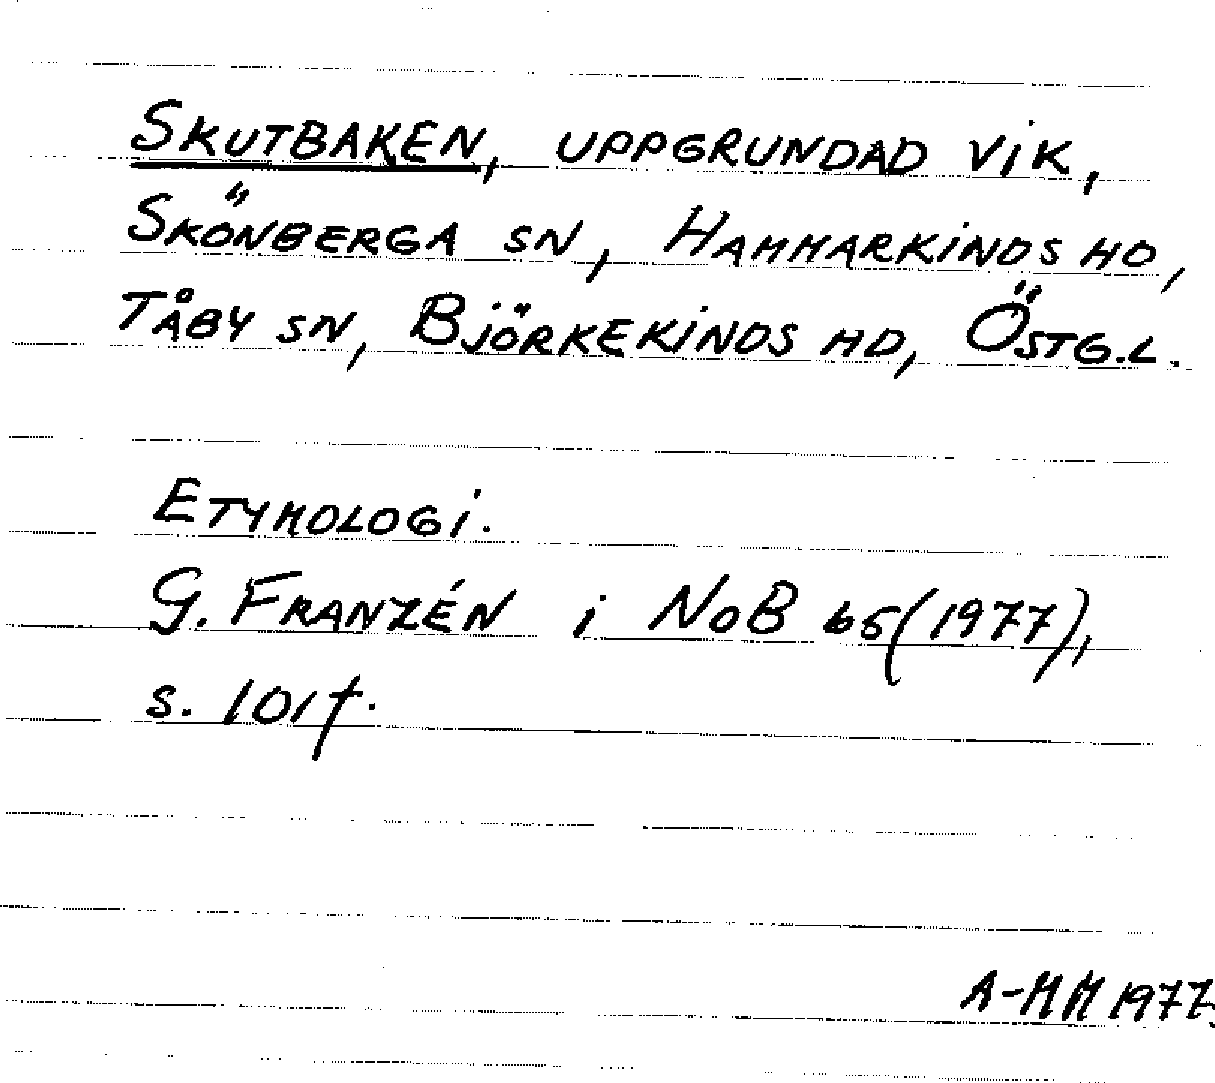 SKUTBAKEN, UPPGRUNDAD VIK,
SKÖNBERGA SN, HAMMARKINDS HD,
TÅBY SN, BJÖRKEKINDS HD, ÖSTG.L.
ETYMOLOGI.
G. FRANZÉN i NoB 65(1977),
s. 101f.
A-MM 1977.